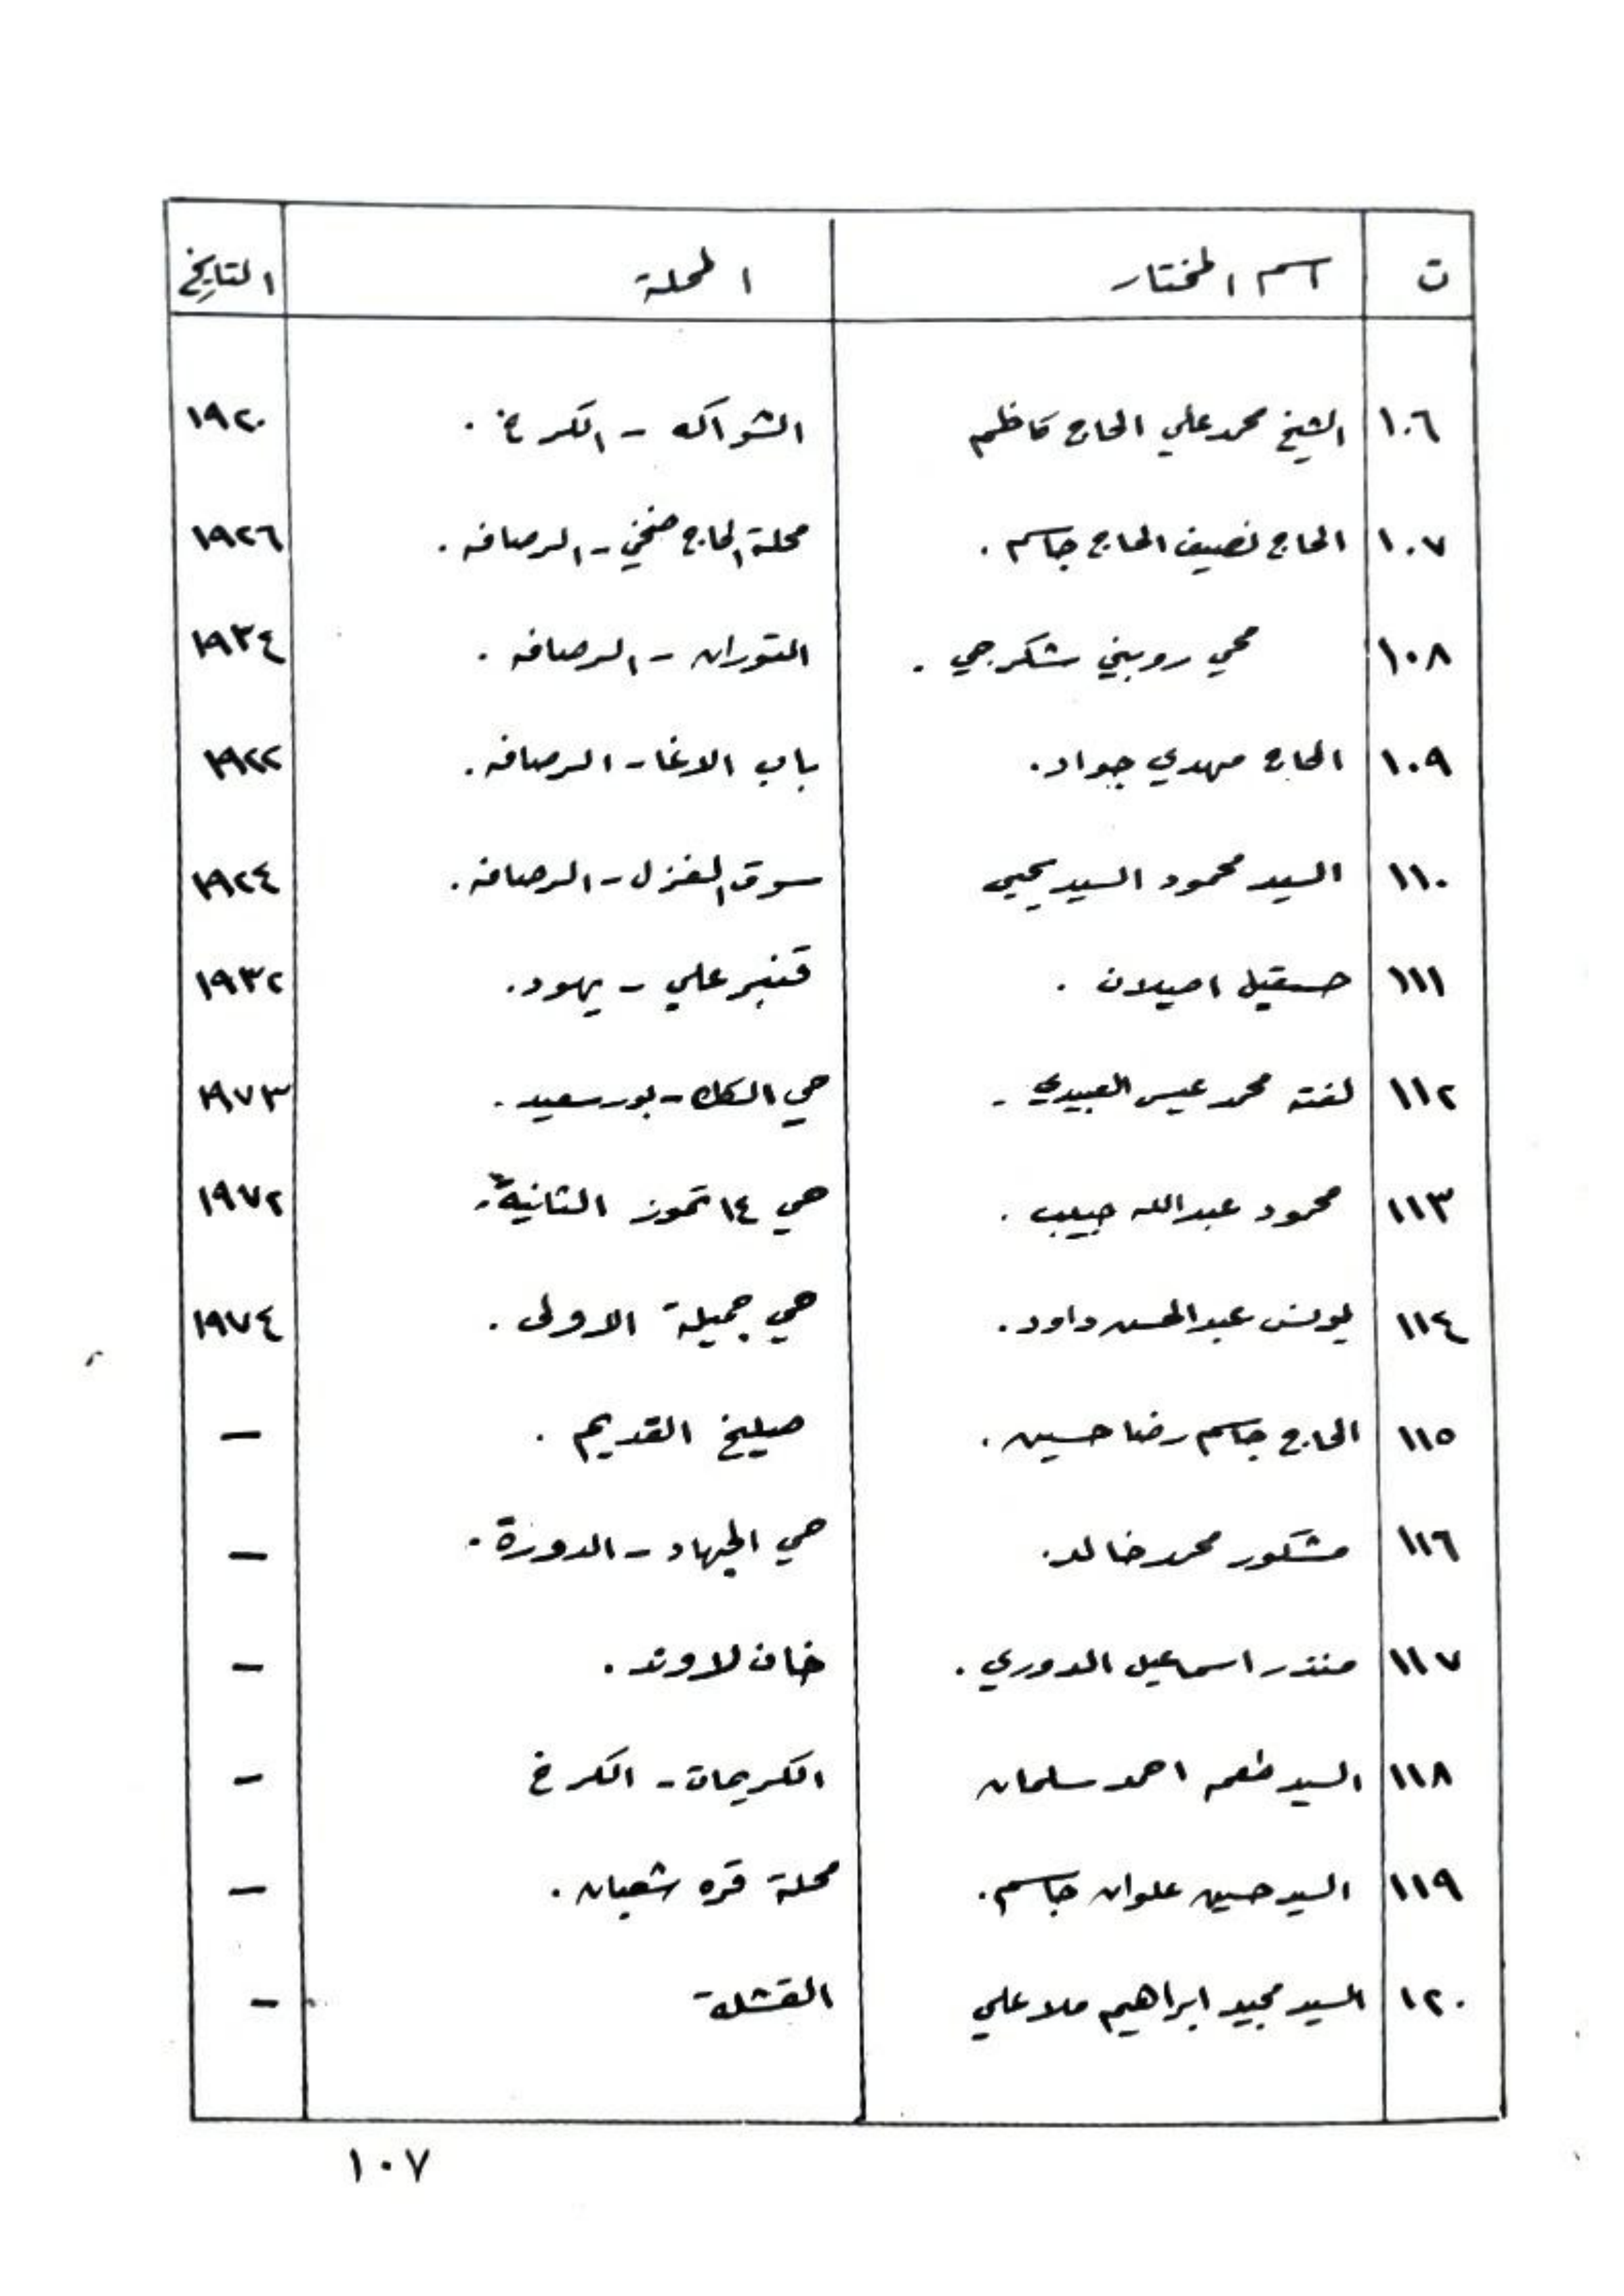 ت اسم المختار المحلة التاريخ
١٠٦ الشيخ محمد علي الحاج كاظم الشواكه - الكرخ . ١٩٢٠
١٠٧ الحاج نصيف الحاج جاسم . محلة الحاج فتحي - الرصافه . ١٩٢٦
١٠٨ محي روبيني شكرجي . التوران - الرصافه . ١٩٣٤
١٠٩ الحاج مهدي جواد . باب الاغا - الرصافه . ١٩٢٢
١١٠ السيد محمود السيد يحيى سوق الغزل - الرصافه . ١٩٢٤
١١١ حسقيل اصيلان . قنبر علي - يهود . ١٩٣٢
١١٢ لفته محمد عيسى العبيدي . حي السكك - بور سعيد . ١٩٧٣
١١٣ محمود عبدالله حبيب . حي ١٤ تموز الثانية . ١٩٧٢
١١٤ يونس عبد الحسن داود . حي جميلة الاولى . ١٩٧٤
١١٥ الحاج جاسم رضا حسين . صليخ القديم . -
١١٦ مشكور محمد خالد . حي الجهاد - الدورة . -
١١٧ منذر اسماعيل الدوري . خان لاوند . -
١١٨ السيد طعمه احمد سلمان الكريمات - الكرخ -
١١٩ السيد حسين علوان جاسم . محلة قره شعبان . -
١٢٠ السيد مجيد ابراهيم ملا علي القشلة -
١٠٧